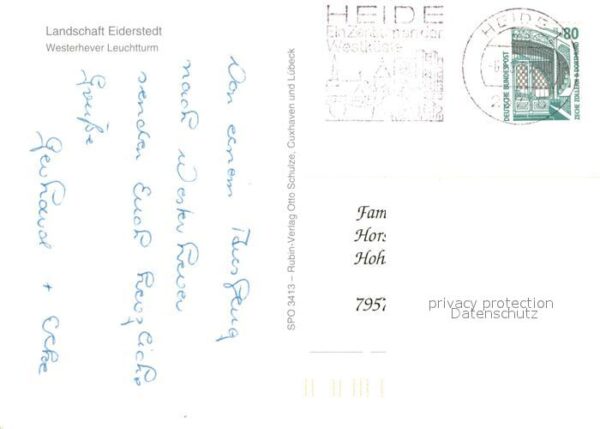 Landschaft Eiderstedt
Westerhever Leuchtturm
Von einem
nach Westerhever
senden Euch herzliche
Grüße
Gerhard +
SPO 3413 – Rubin-Verlag Otto Schulze, Cuxhaven und Lübeck
HEIDE
Ein Zentrum an der
Westküste
HEIDE
80
DEUTSCHE BUNDESPOST
ZECHE ZOLLERN II DORTMUND
Fam
Hors
Hoh
7957
privacy protection
Datenschutz